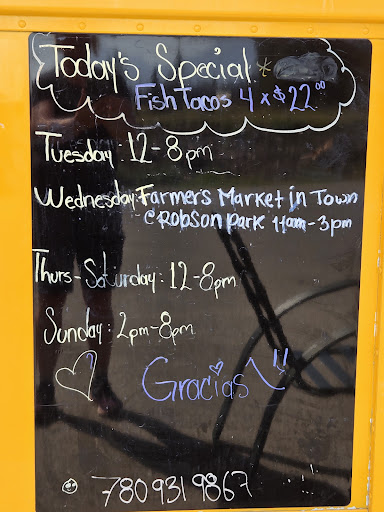 Today's Special *
Fish Tacos 4 x $22.00
Tuesday : 12-8pm
Wednesday: Farmer's Market in Town
@ Robson Park 11am - 3pm
Thurs - Saturday : 12-8pm
Sunday : 2pm-8pm
Gracias!!
780 931 9867